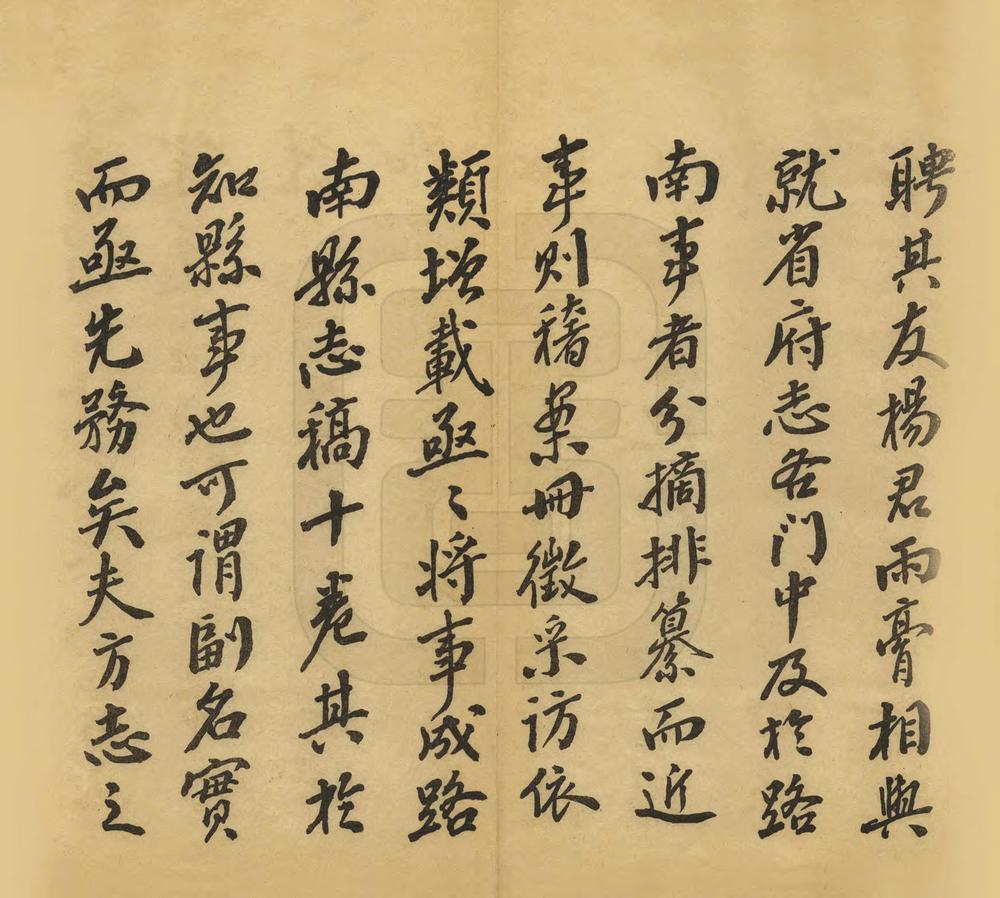 聘其友楊君雨膏相與
就省府志各门中及於路
南事者分摘排纂而近
事則稽案冊徵采访依
類增載亟〻將事成路
南縣志稿十卷其於
知縣事也可谓副名實
而亟先務矣夫方志之